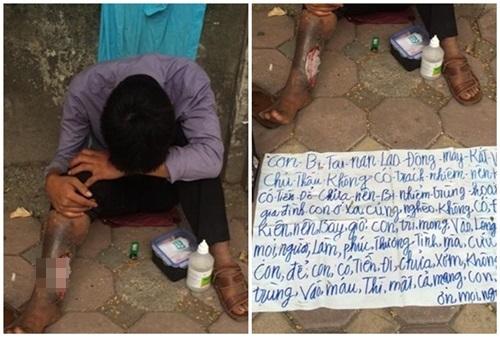 Con-Bị-Tai-nạn Lao-Động, máy-Kát-
Chủ-Thầu-Không-Có-trách-nhiệm, nên-
có-Tiền-Để-Chữa-nên-Bị-nhiễm-trùng-hoại
gia-đình-con-ở-Xa-cũng-nghèo-Không-có-
Kiện, nên-Bây-giờ-con, trí, mong-Vào, Lòng
mọi, người, Lam, phúc-Thương-Tình, mà, cứu
Con, để, con, có, Tiền-Đi, chữa, Xóm, Không
trùng-Vào-máu, Thì, mất, cả, mạng, con,
ơn, mọi, ng